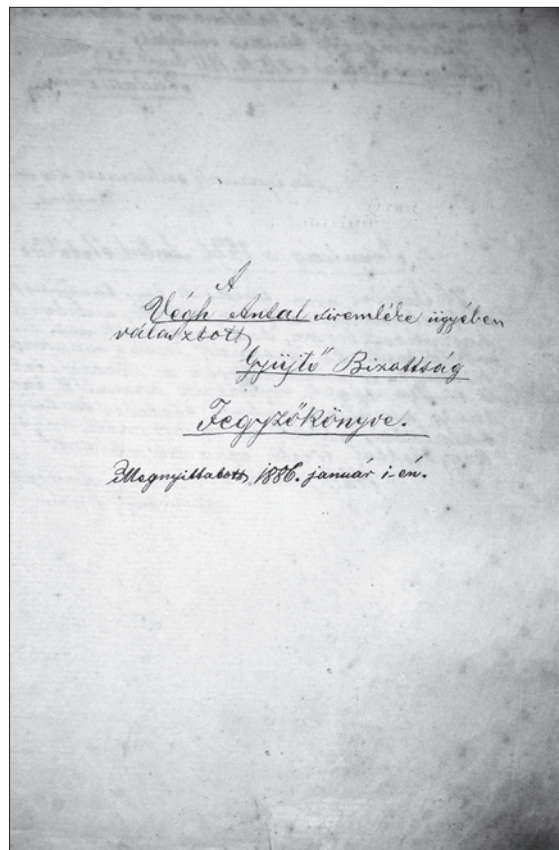 A
Végh Antal siremléke ügyében
választott
Gyüjtő Bizottság
Jegyzőkönyve.
Megnyittatott 1886. január 1-én.